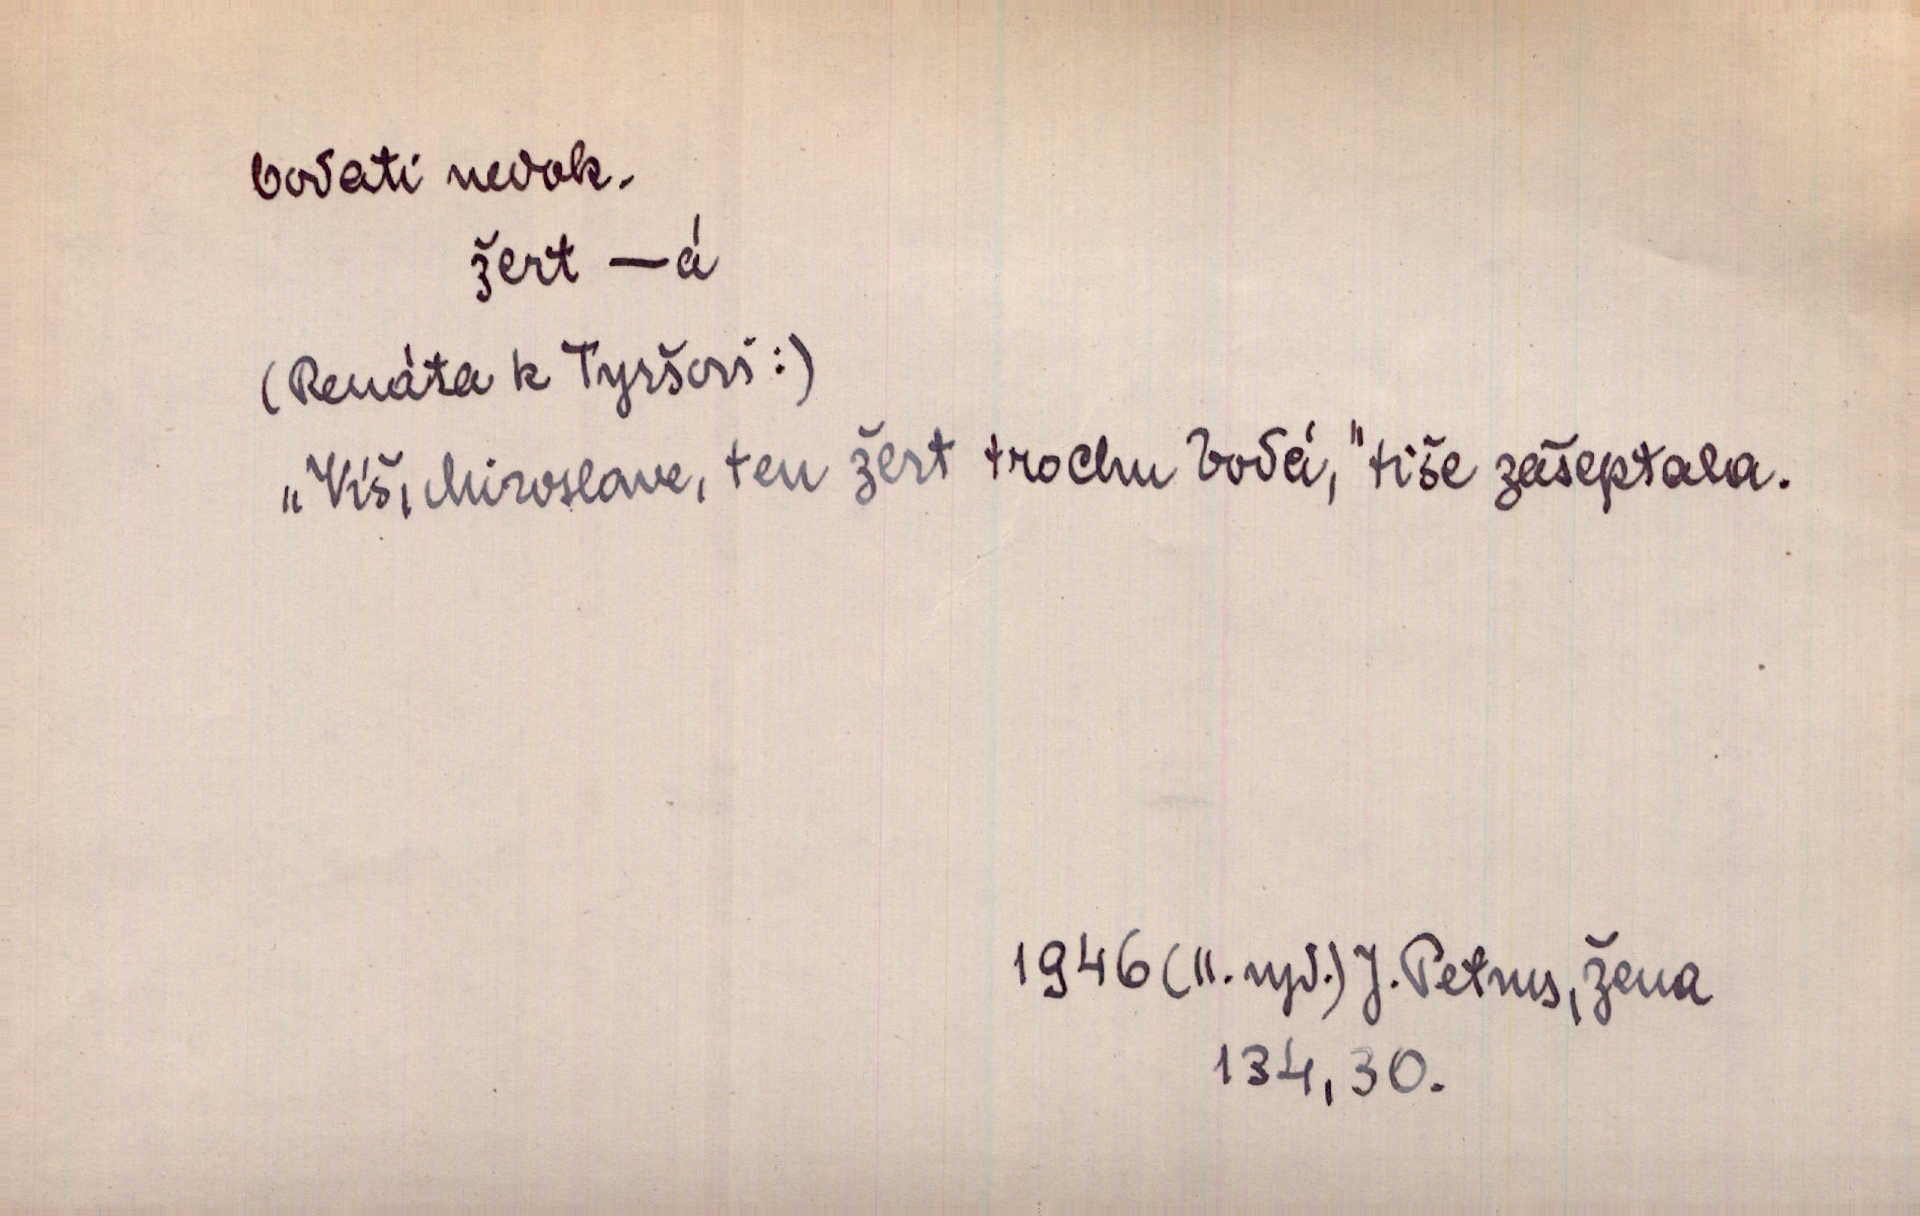 bodati nedok.
žert — á
(Renáta k Tyršovi:)
„Víš, Miroslave, ten žert trochu bodá," tiše zašeptala.
1946 (II. vyd.) J. Petrus, Žena
134, 30.